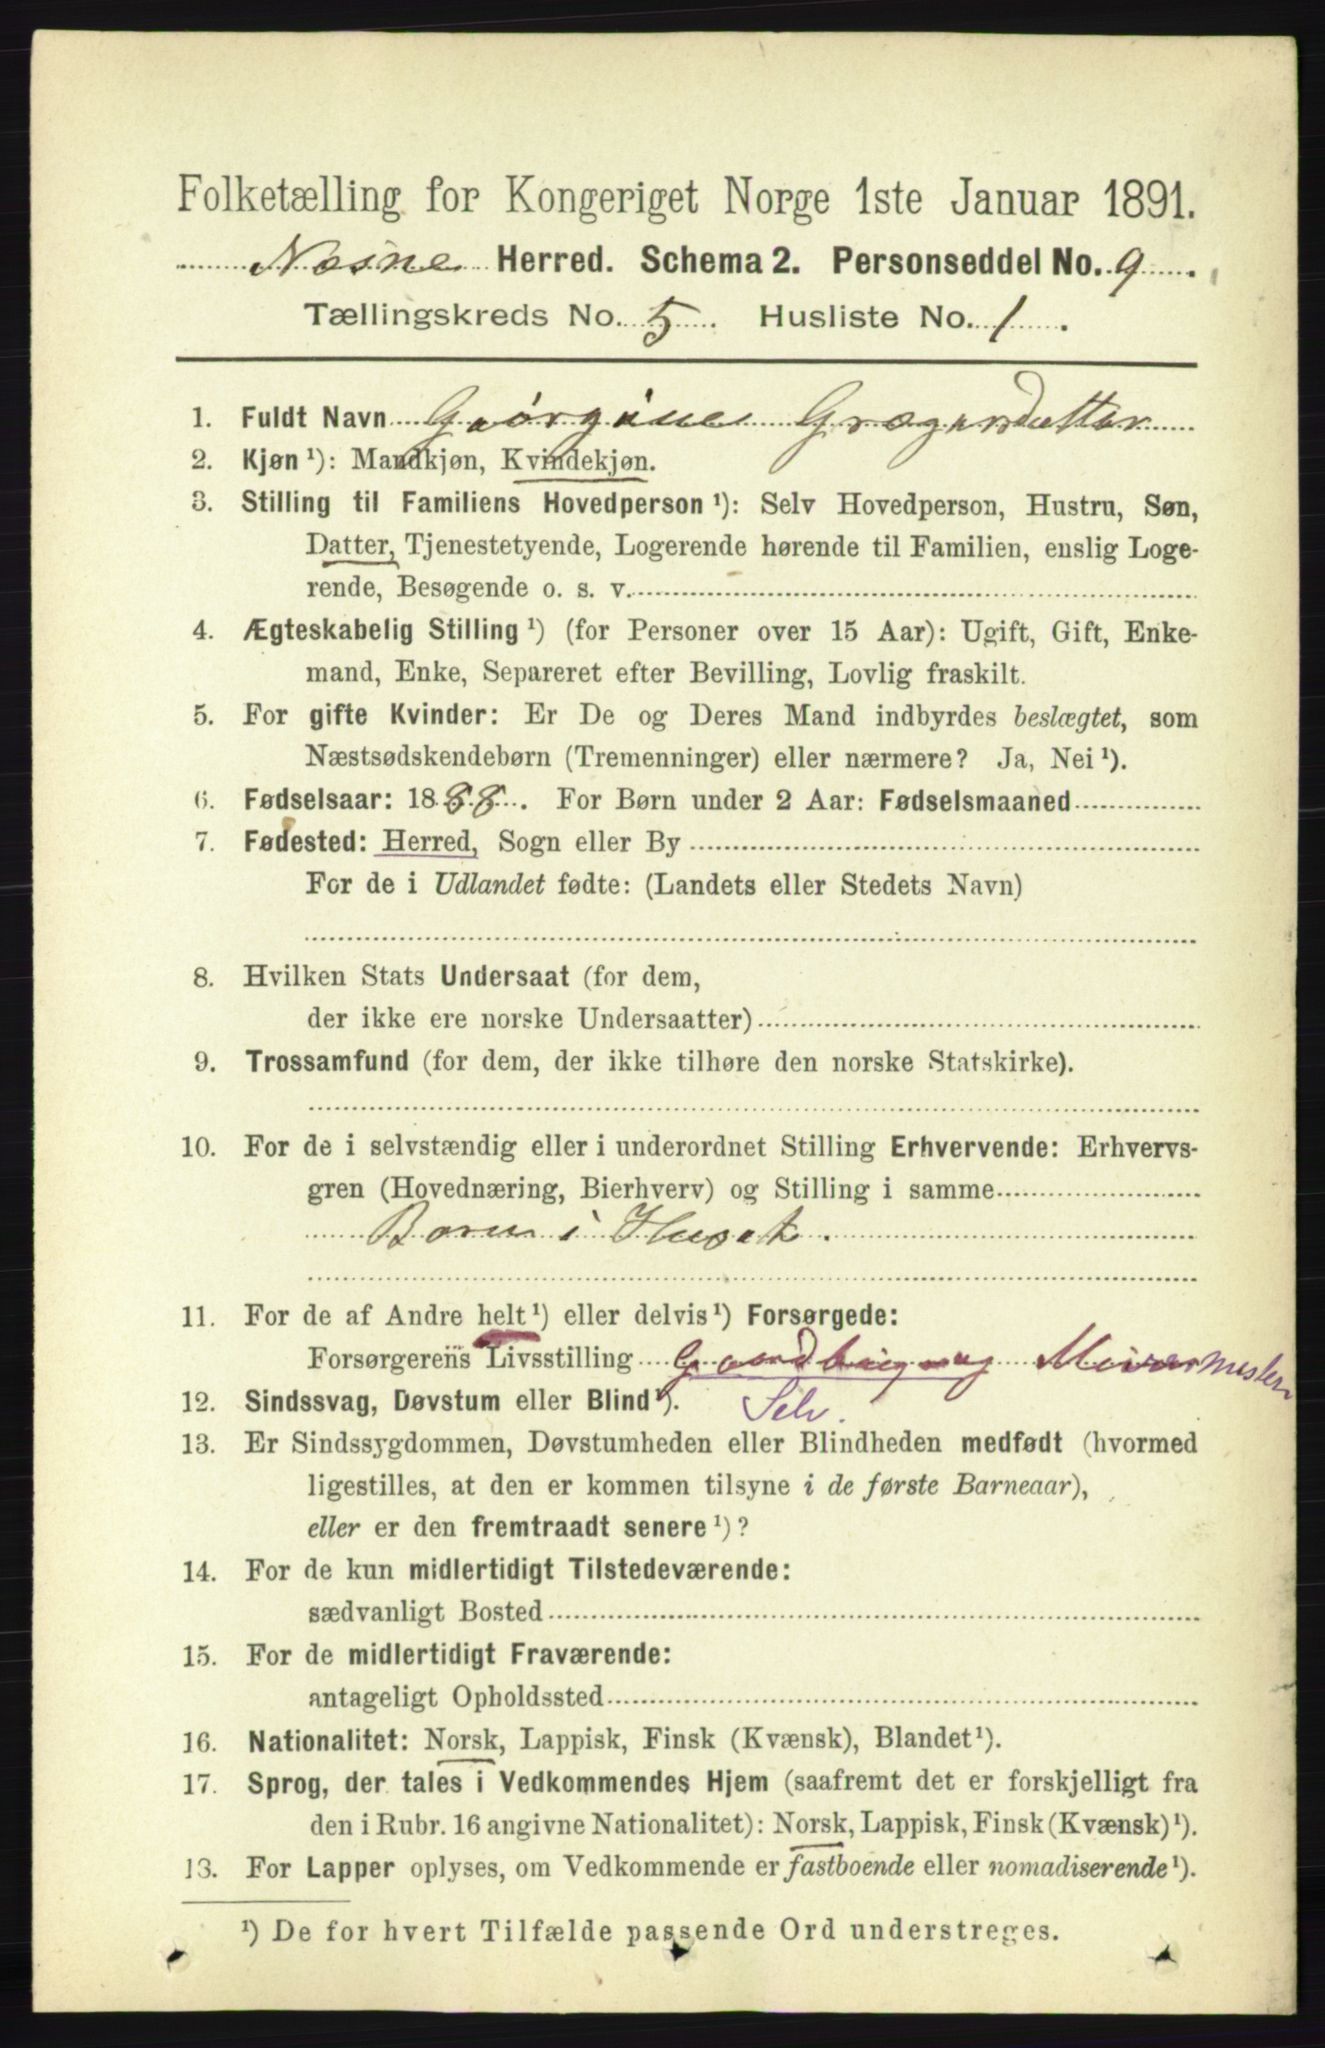 Folketælling for Kongeriget Norge 1ste Januar 1891.
Nesne Herred. Schema 2. Personseddel No. 9
Tællingskreds No. 5. Husliste No. 1.
1. Fuldt Navn Georgine Gregersdatter
2. Kjøn ¹): Mandkjøn, Kvindekjøn.
3. Stilling til Familiens Hovedperson ¹): Selv Hovedperson, Hustru, Søn,
Datter, Tjenestetyende, Logerende hørende til Familien, enslig Loge-
rende, Besøgende o. s. v.
4. Ægteskabelig Stilling ¹) (for Personer over 15 Aar): Ugift, Gift, Enke-
mand, Enke, Separeret efter Bevilling, Lovlig fraskilt.
5. For gifte Kvinder: Er De og Deres Mand indbyrdes beslægtet, som
Næstsødskendebørn (Tremenninger) eller nærmere? Ja, Nei ¹).
6. Fødselsaar: 1888. For Børn under 2 Aar: Fødselsmaaned
7. Fødested: Herred, Sogn eller By
For de i Udlandet fødte: (Landets eller Stedets Navn)
8. Hvilken Stats Undersaat (for dem,
der ikke ere norske Undersaatter)
9. Trossamfund (for dem, der ikke tilhøre den norske Statskirke).
10. For de i selvstændig eller i underordnet Stilling Erhvervende: Erhvervs-
gren (Hovednæring, Bierhverv) og Stilling i samme
Barn i Huset.
11. For de af Andre helt ¹) eller delvis ¹) Forsørgede:
Forsørgerens Livsstilling Gaardbrug og
12. Sindssvag, Døvstum eller Blind ¹). Selv.
13. Er Sindssygdommen, Døvstumheden eller Blindheden medfødt (hvormed
ligestilles, at den er kommen tilsyne i de første Barneaar),
eller er den fremtraadt senere ¹)?
14. For de kun midlertidigt Tilstedeværende:
sædvanligt Bosted
15. For de midlertidigt Fraværende:
antageligt Opholdssted
16. Nationalitet: Norsk, Lappisk, Finsk (Kvænsk), Blandet ¹).
17. Sprog, der tales i Vedkommendes Hjem (saafremt det er forskjelligt fra
den i Rubr. 16 angivne Nationalitet): Norsk, Lappisk, Finsk (Kvænsk) ¹).
13. For Lapper oplyses, om Vedkommende er fastboende eller nomadiserende ¹).
¹) De for hvert Tilfælde passende Ord understreges.